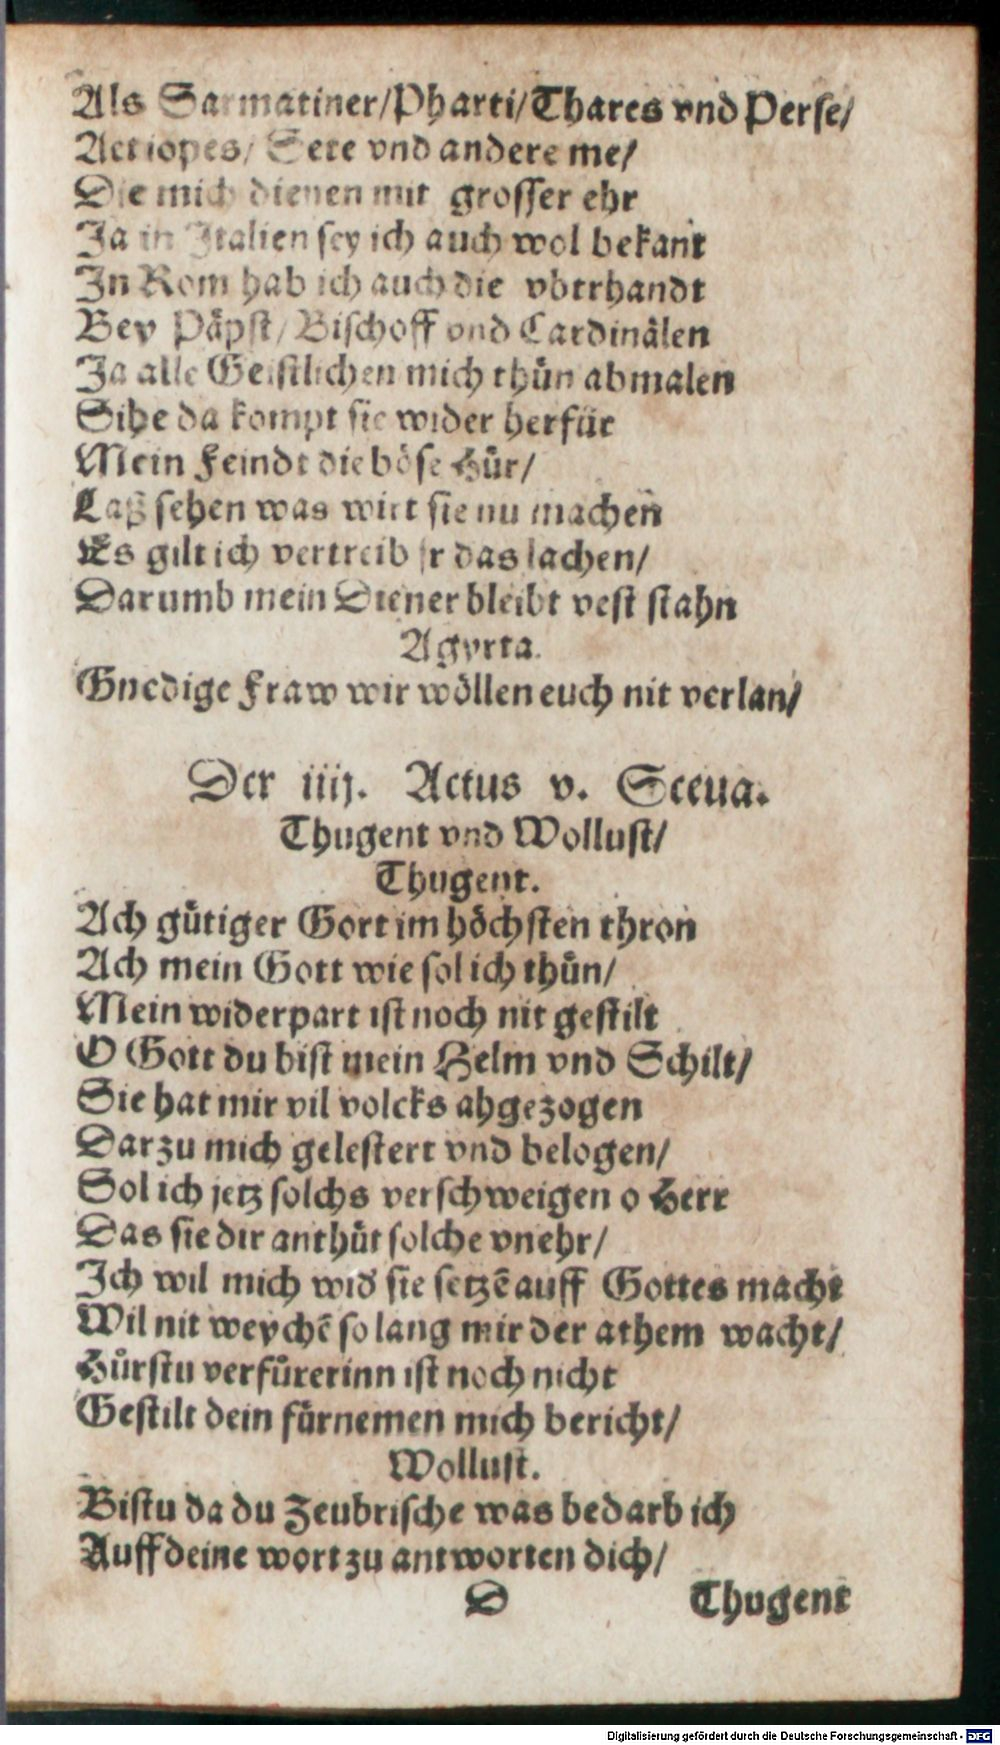 Als Sarmatiner/Pharti/Thares vnd Perse/
Aetiopes/ Sere vnd andere me/
Die mich dienen mit grosser ehr
Ja in Italien sey ich auch wol bekant
In Rom hab ich auch die vbtrhandt
Bey Päpst/ Bischoff vnd Cardinälen
Ja alle Geistlichen mich thůn abmalen
Sihe da kompt sie wider herfür
Mein Feindt die böse Hůr/
Laß sehen was wirt sie nu machen
Es gilt ich vertreib jr das lachen/
Darumb mein Diener bleibt vest stahn
Agyrta.
Gnedige Fraw wir wöllen euch nit verlan/
Der iiij. Actus v. Sceua.
Thugent vnd Wollust/
Thugent.
Ach gütiger Gott im höchsten thron
Ach mein Gott wie sol ich thůn/
Mein widerpart ist noch nit gestilt
O Gott du bist mein Helm vnd Schilt/
Sie hat mir vil volcks ahgezogen
Darzu mich gelestert vnd belogen/
Sol ich jetz solchs verschweigen o Herr
Das sie dir anthůt solche vnehr/
Ich wil mich wid' sie setzē auff Gottes macht
Wil nit weychē so lang mir der athem wacht/
Hůrstu verfůrerinn ist noch nicht
Gestilt dein fürnemen mich bericht/
Wollust.
Bistu da du Zeubrische was bedarb ich
Auff deine wort zu antworten dich/
D Thugent
Digitalisierung gefördert durch die Deutsche Forschungsgemeinschaft - DFG